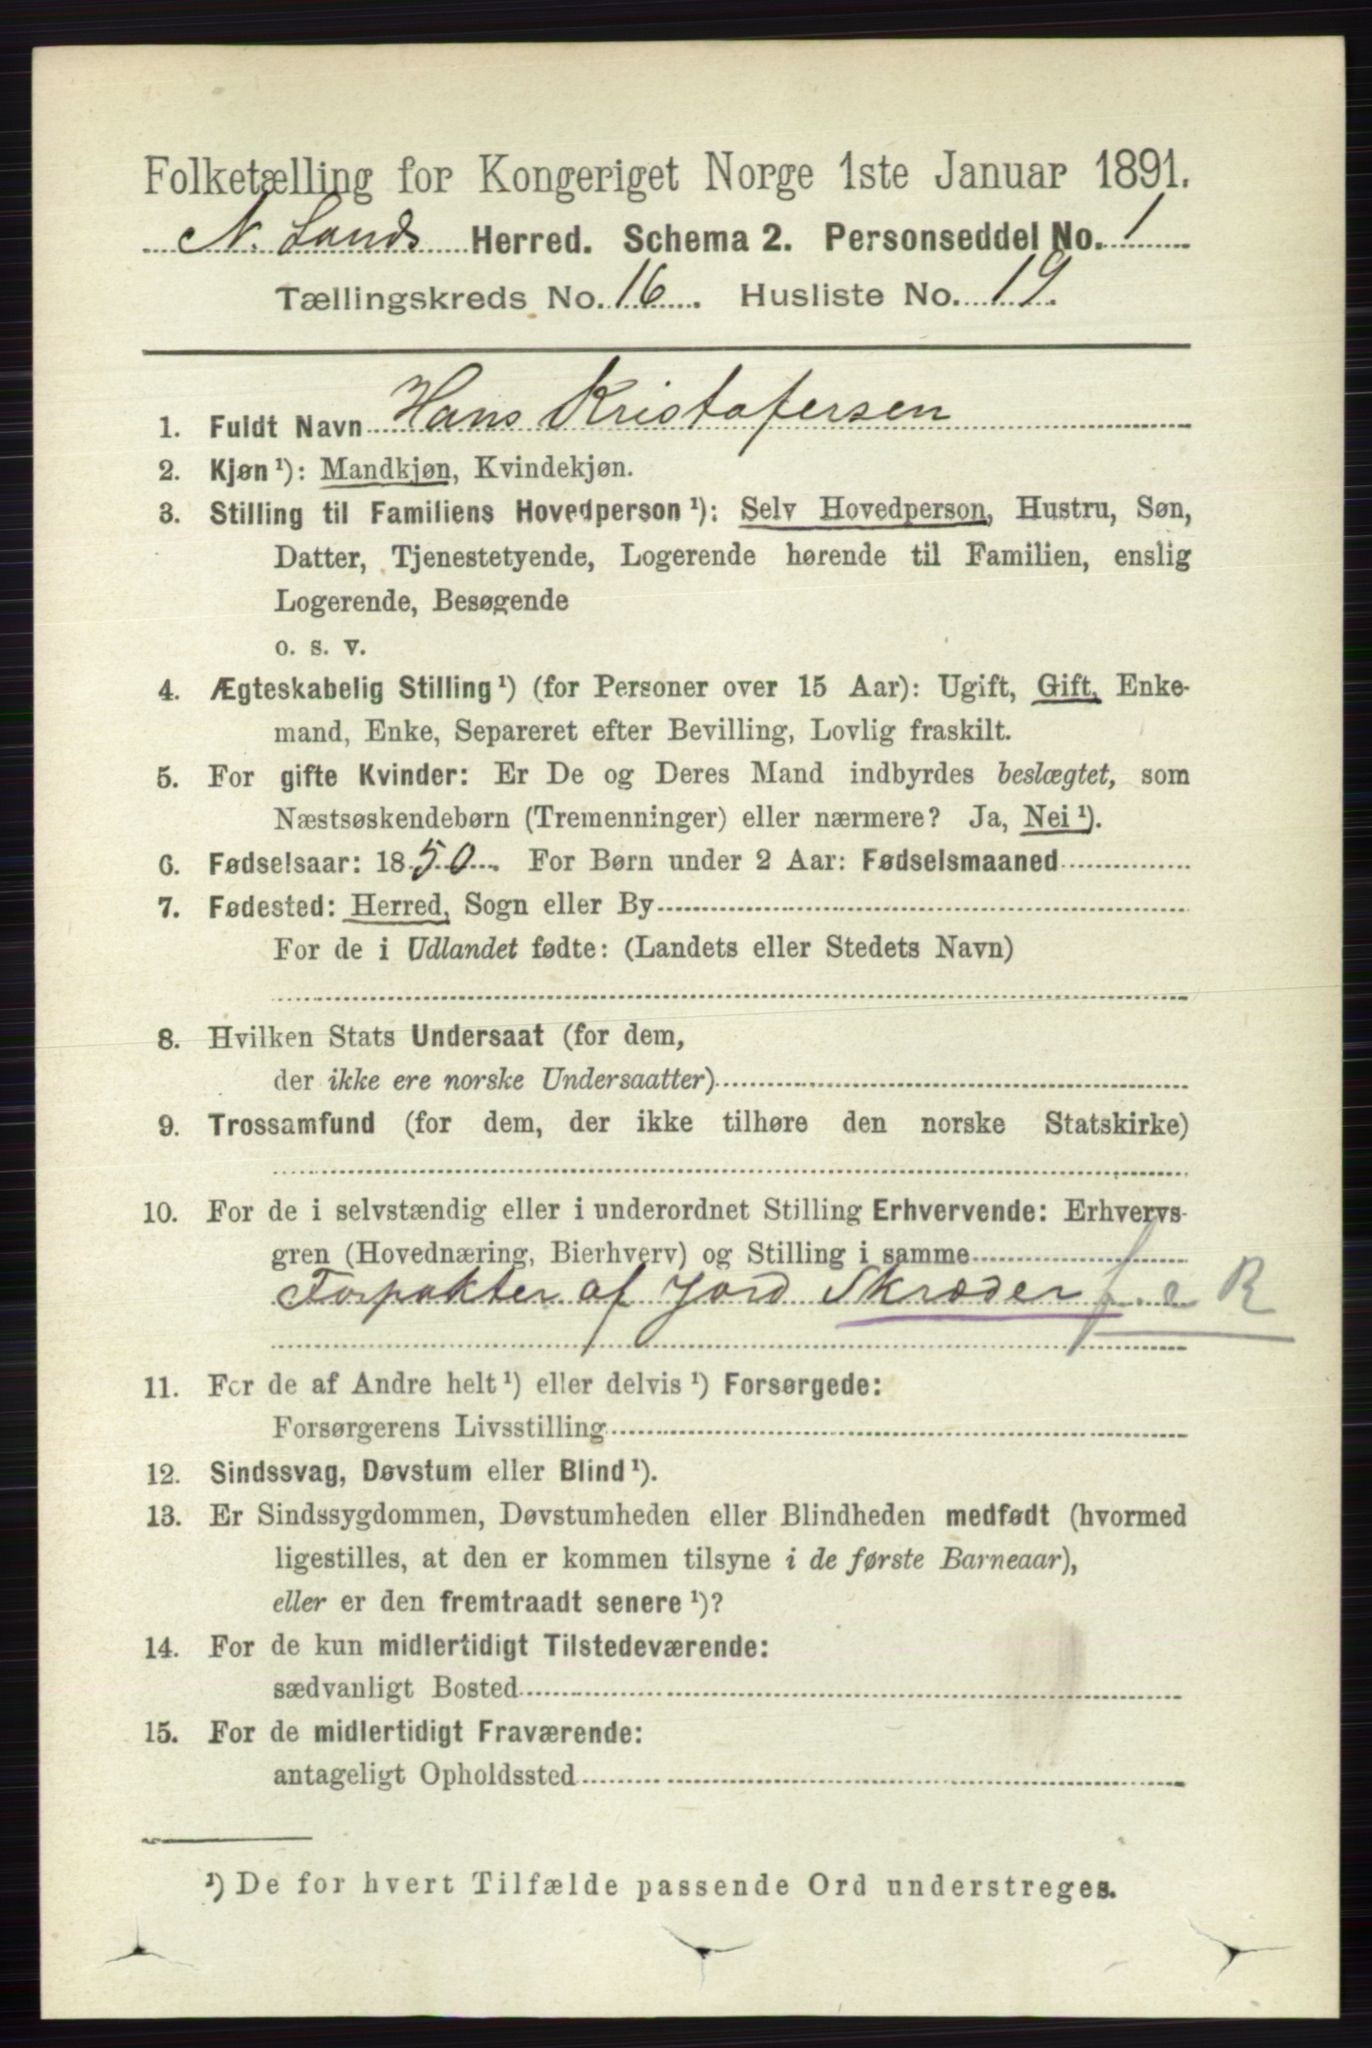 Folketælling for Kongeriget Norge 1ste Januar 1891.
N. Lands Herred. Schema 2. Personseddel No. 1
Tællingskreds No. 16. Husliste No. 19.
1. Fuldt Navn Hans Kristofersen
2. Kjøn ¹): Mandkjøn, Kvindekjøn.
3. Stilling til Familiens Hovedperson ¹): Selv Hovedperson, Hustru, Søn,
Datter, Tjenestetyende, Logerende hørende til Familien, enslig
Logerende, Besøgende
o. s. v.
4. Ægteskabelig Stilling ¹) (for Personer over 15 Aar): Ugift, Gift, Enke-
mand, Enke, Separeret efter Bevilling, Lovlig fraskilt.
5. For gifte Kvinder: Er De og Deres Mand indbyrdes beslægtet, som
Næstsøskendebørn (Tremenninger) eller nærmere? Ja, Nei ¹).
6. Fødselsaar: 1850. For Børn under 2 Aar: Fødselsmaaned
7. Fødested: Herred, Sogn eller By
For de i Udlandet fødte: (Landets eller Stedets Navn)
8. Hvilken Stats Undersaat (for dem,
der ikke ere norske Undersaatter)
9. Trossamfund (for dem, der ikke tilhøre den norske Statskirke)
10. For de i selvstændig eller i underordnet Stilling Erhvervende: Erhvervs-
gren (Hovednæring, Bierhverv) og Stilling i samme
Forpakter af Jord Skræder f. e R
11. For de af Andre helt ¹) eller delvis ¹) Forsørgede:
Forsørgerens Livsstilling
12. Sindssvag, Døvstum eller Blind ¹).
13. Er Sindssygdommen, Døvstumheden eller Blindheden medfødt (hvormed
ligestilles, at den er kommen tilsyne i de første Barneaar),
eller er den fremtraadt senere ¹)?
14. For de kun midlertidigt Tilstedeværende:
sædvanligt Bosted
15. For de midlertidigt Fraværende:
antageligt Opholdssted
¹) De for hvert Tilfælde passende Ord understreges.